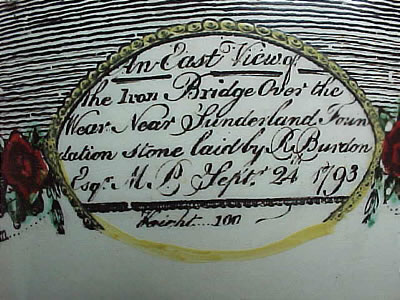 An East View of
the Iron Bridge Over the
Wear Near Sunderland Foun
dation stone laid by R. Burdon
Esqr. M. P. Septr. 24 1793
Height....100